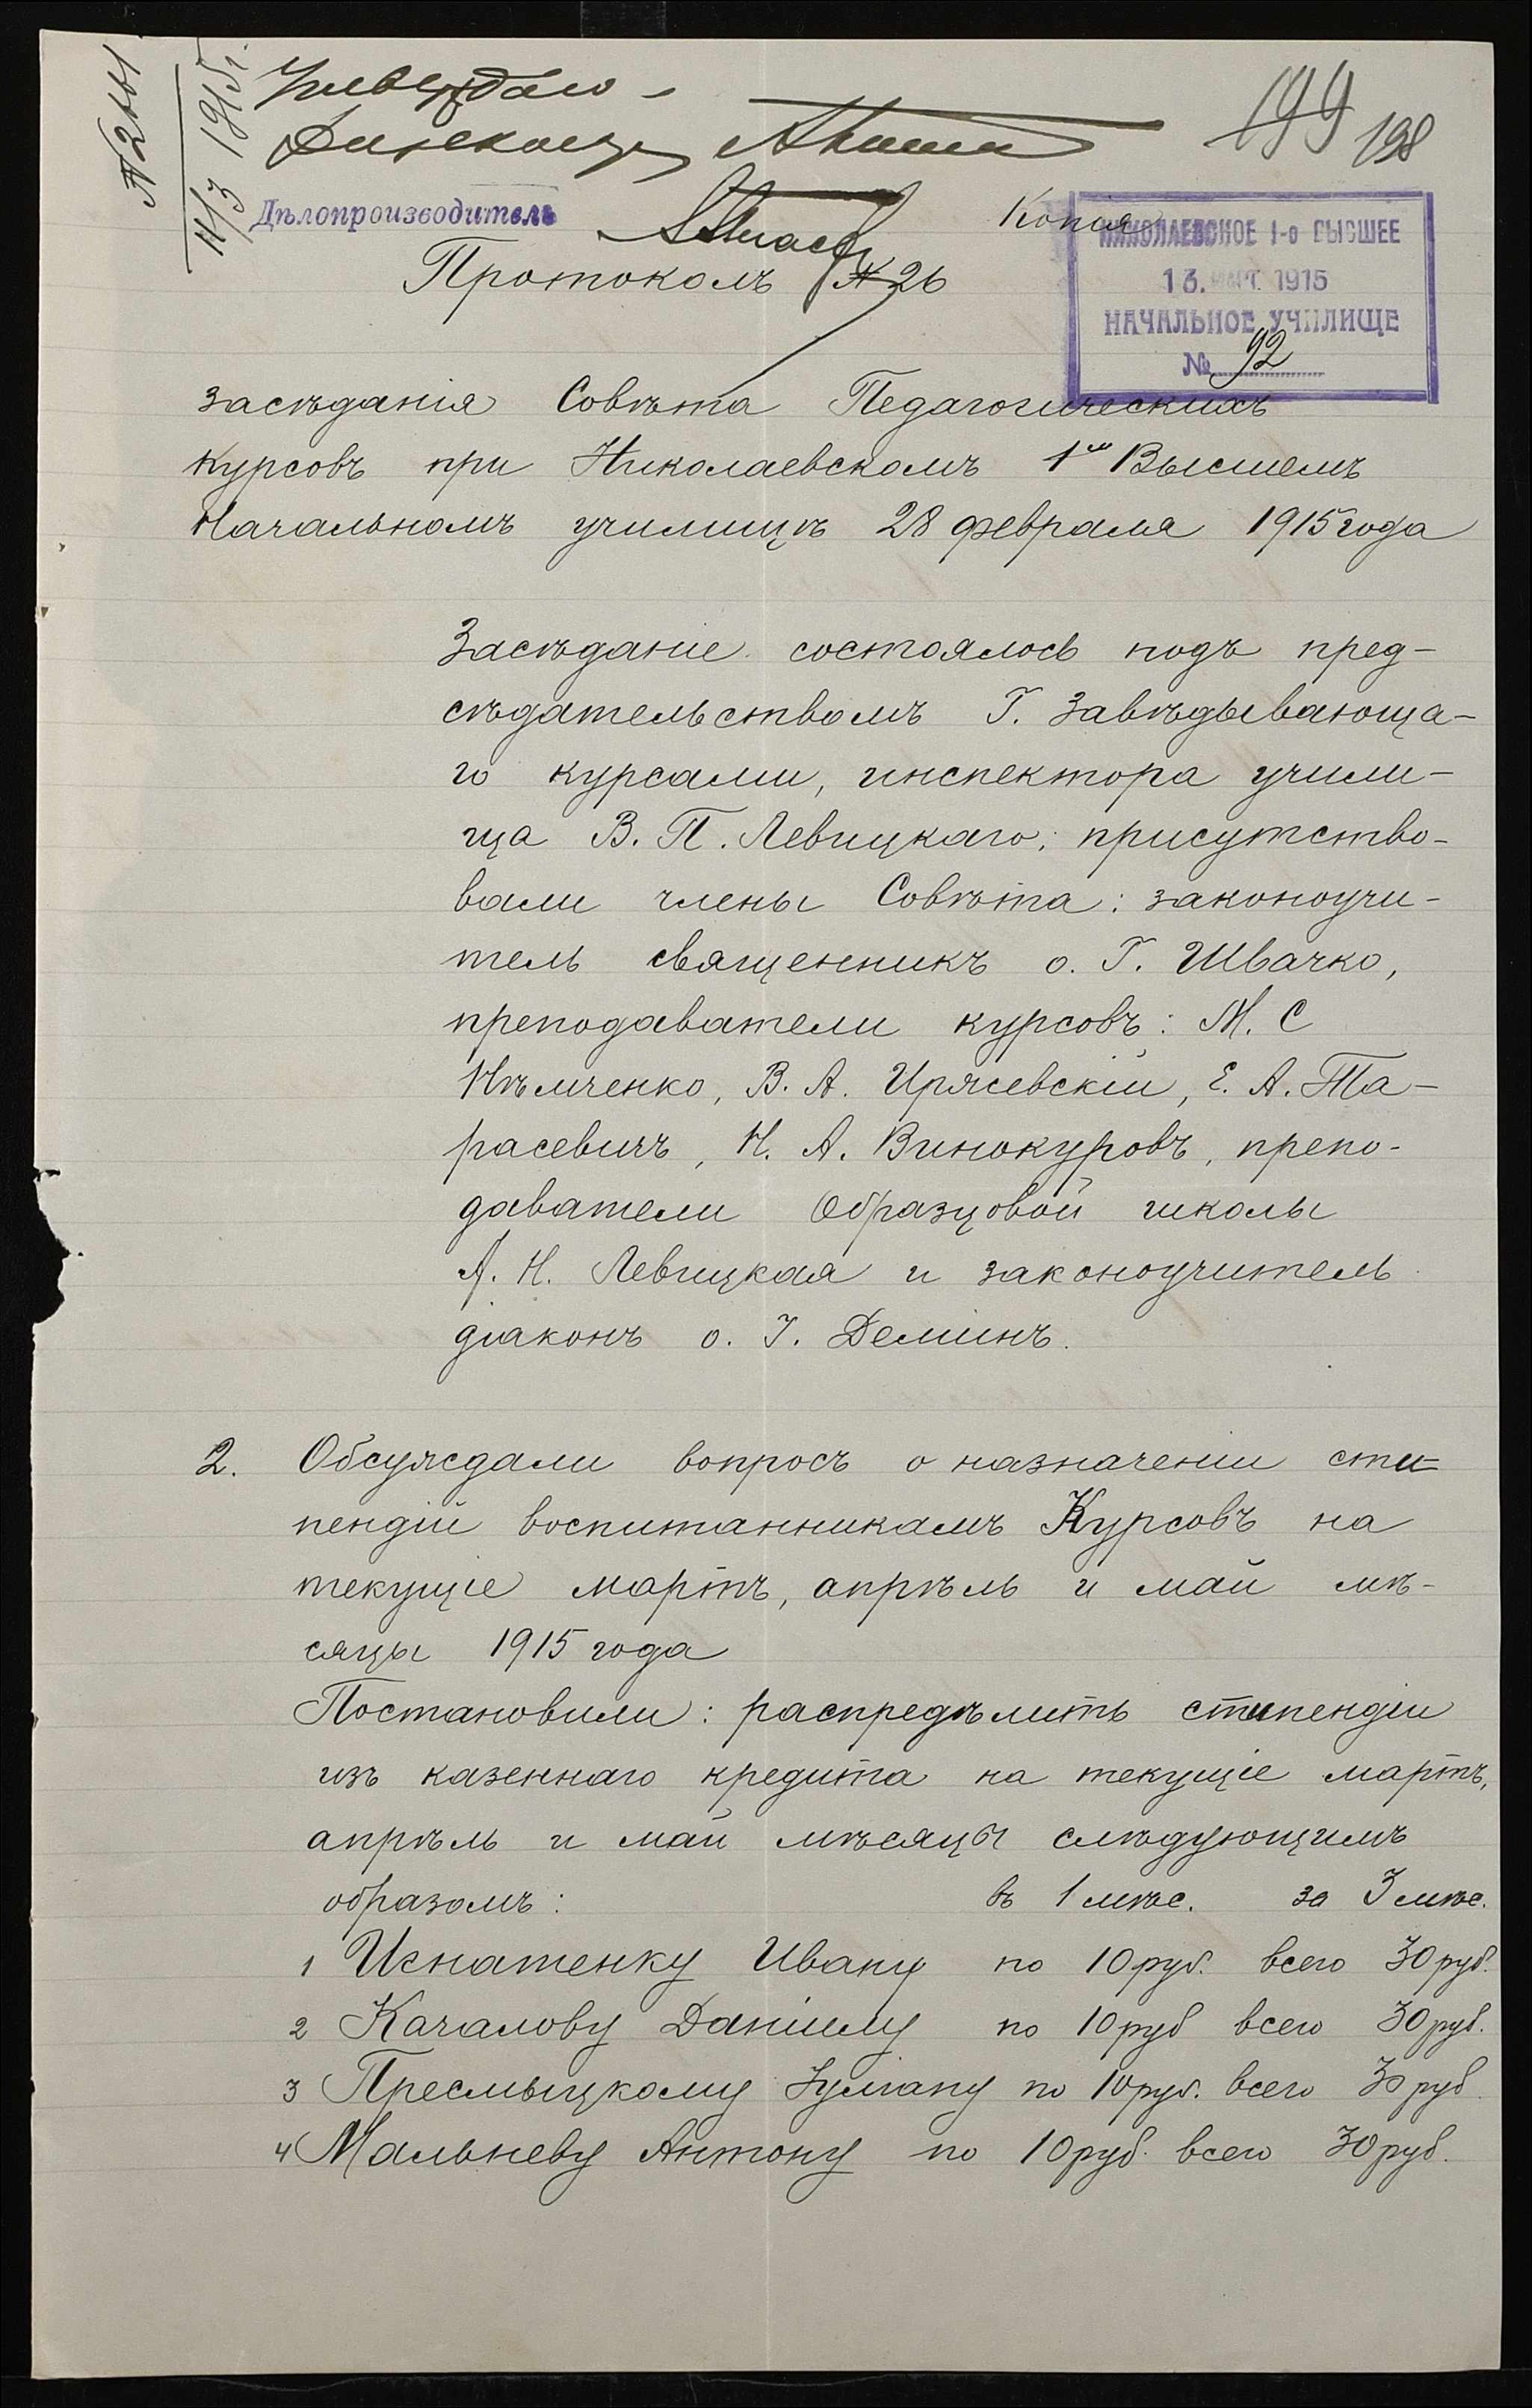 № 2661
11/3 1915 г.
Утверждаю
199 198
Дѣлопроизводитель
Копія
Протоколъ № 26
НИКОЛАЕВСКОЕ 1-о ВЫСШЕЕ
13. МАРТ. 1915
НАЧАЛЬНОЕ УЧИЛИЩЕ
№ 92
засѣданія Совѣта Педагогическихъ
Курсовъ при Николаевскомъ 1ᵐ Высшемъ
Начальномъ училищѣ 28 февраля 1915 года
Засѣданіе состоялось подъ пред-
сѣдательствомъ Г. Завѣдывающа-
го курсами, инспектора учили-
ща В. П. Левицкаго; присутство-
вали члены Совѣта: законоучи-
тель священникъ о. Г. Швачко,
преподаватели курсовъ: М. С
Нѣмченко, В. А. Иряшевскій, Е. А. Та-
расевичъ, Н. А. Винокуровъ, препо-
даватели Образцовой школы
А. Н. Левицкая и законоучитель
діаконъ о. І. Деминъ.
2. Обсуждали вопросъ о назначеніи сти-
пендій воспитанникамъ Курсовъ на
текущіе мартъ, апрѣль и май мѣ-
сяцы 1915 года
Постановили: распредѣлить стипендіи
изъ казеннаго кредита на текущіе мартъ,
апрѣль и май мѣсяцы слѣдующимъ
образомъ: въ 1 мѣс. за 3 мѣс.
1 Игнатенку Ивану по 10 руб. всего 30 руб.
2 Качалову Даніилу по 10 руб всего 30 руб.
3 Пресмыцкому Іуліану по 10 руб. всего 30 руб
4 Мальневу Антону по 10 руб. всего 30 руб.